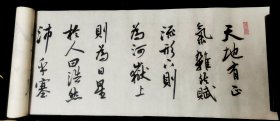 天地有正
氣雜然賦
流形下則
為河嶽上
則為日星
於人曰浩然
沛乎塞